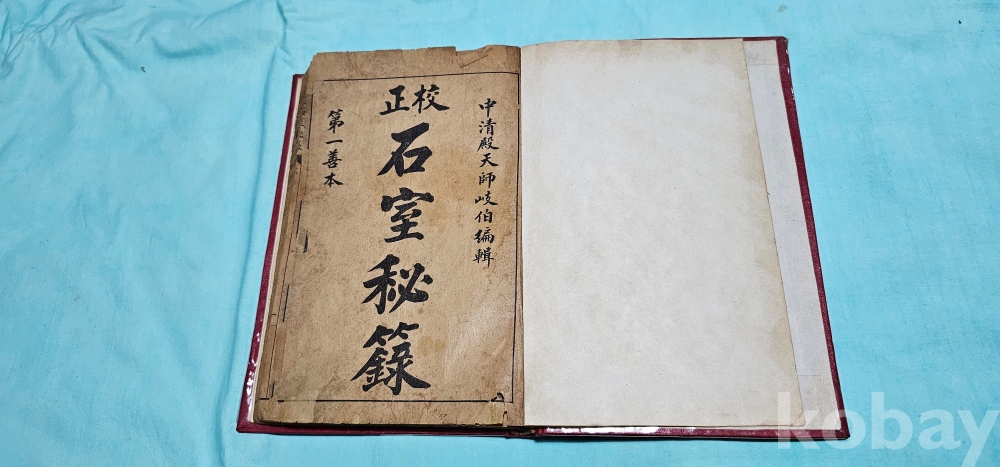 中清殿天師岐伯編輯
校正
石室秘籙
第一善本
kobay